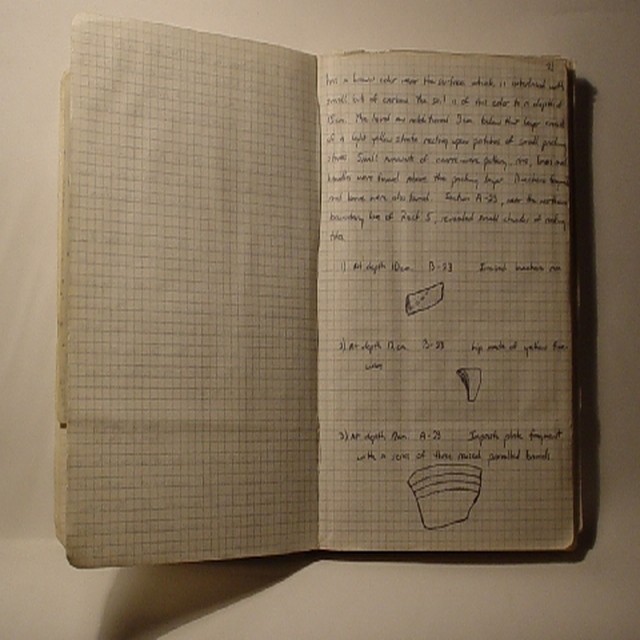 has a brown color near the surface which is interlaced with
small bits of carbon. The soil is of this color to a depth of
15cm. The layer an additional 3cm below that layer
of a light yellow strata resting upon patches of small packing
stones. Small amounts of coarse-ware pottery, rims, bases and
handles were found above the packing layer.
and bone were also found. Section A-23, near the northern
boundary line of 5, revealed small shards of roofing
tiles.
1) At depth 10cm B-23 Incised
2) At depth 12cm B-23 Lip made of yellow fine
ware
3) At depth 12cm A-23 plate fragment
with a series of three raised parralled bands